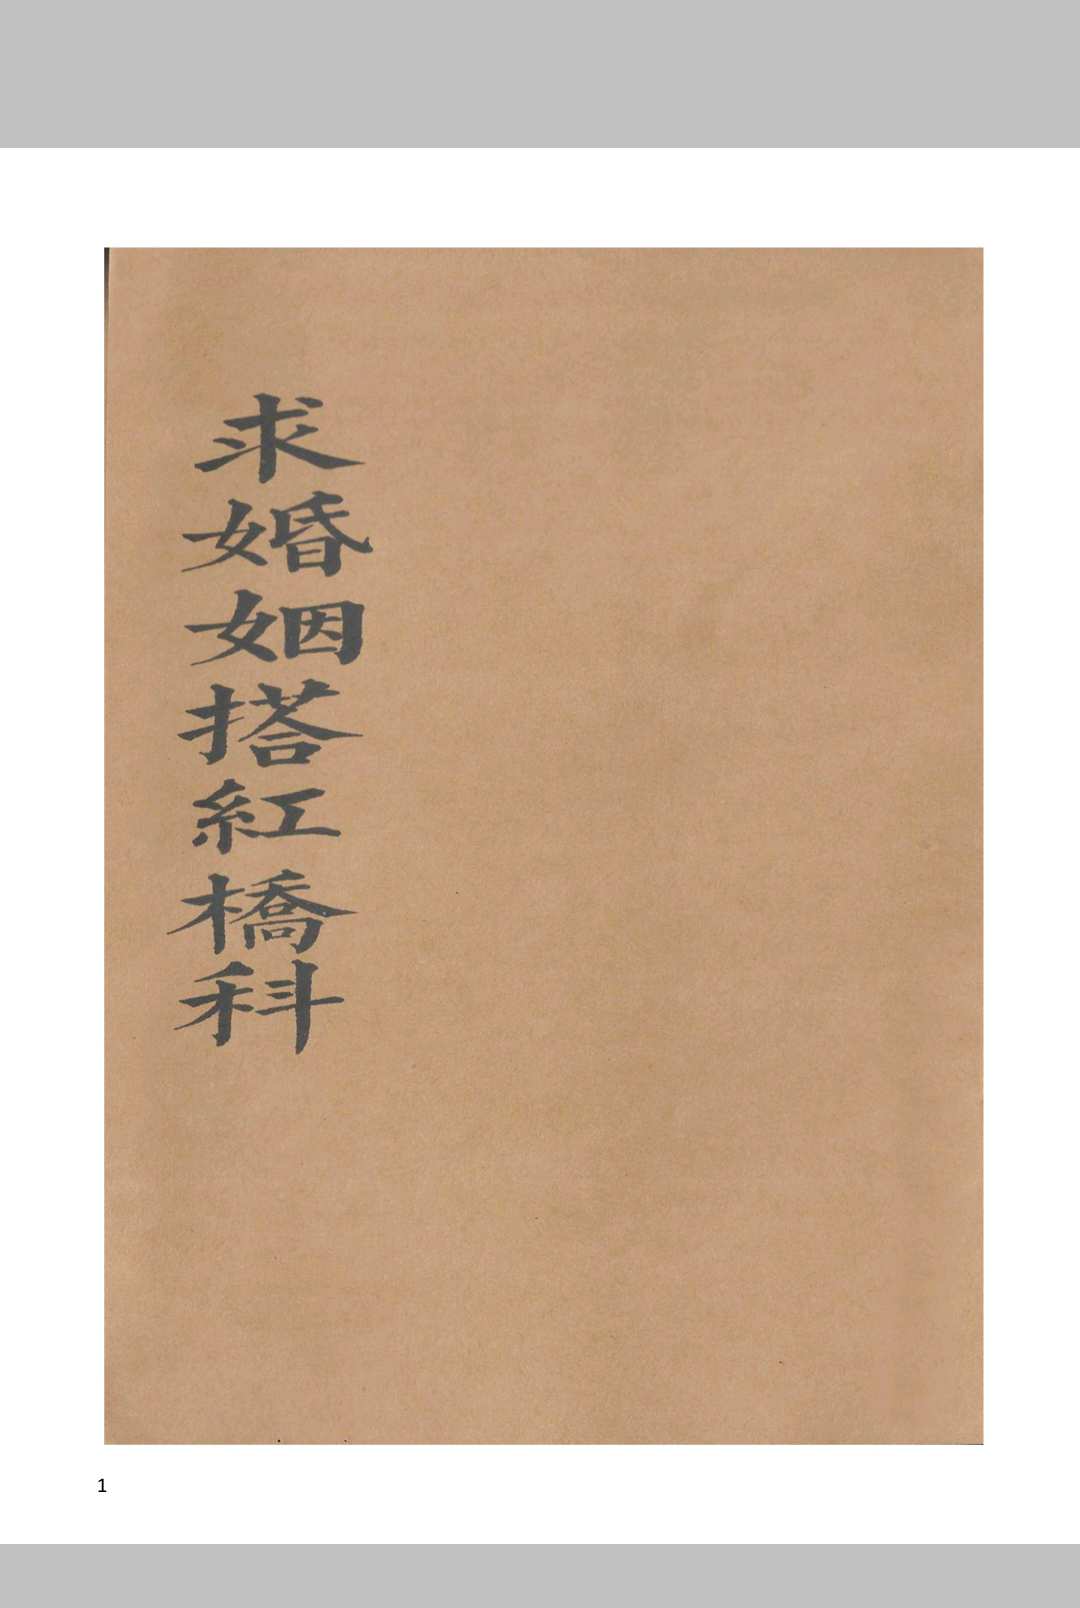 求婚姻搭紅橋科
1